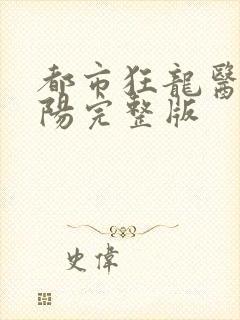 都市狂龍醫
陽完整版
史偉